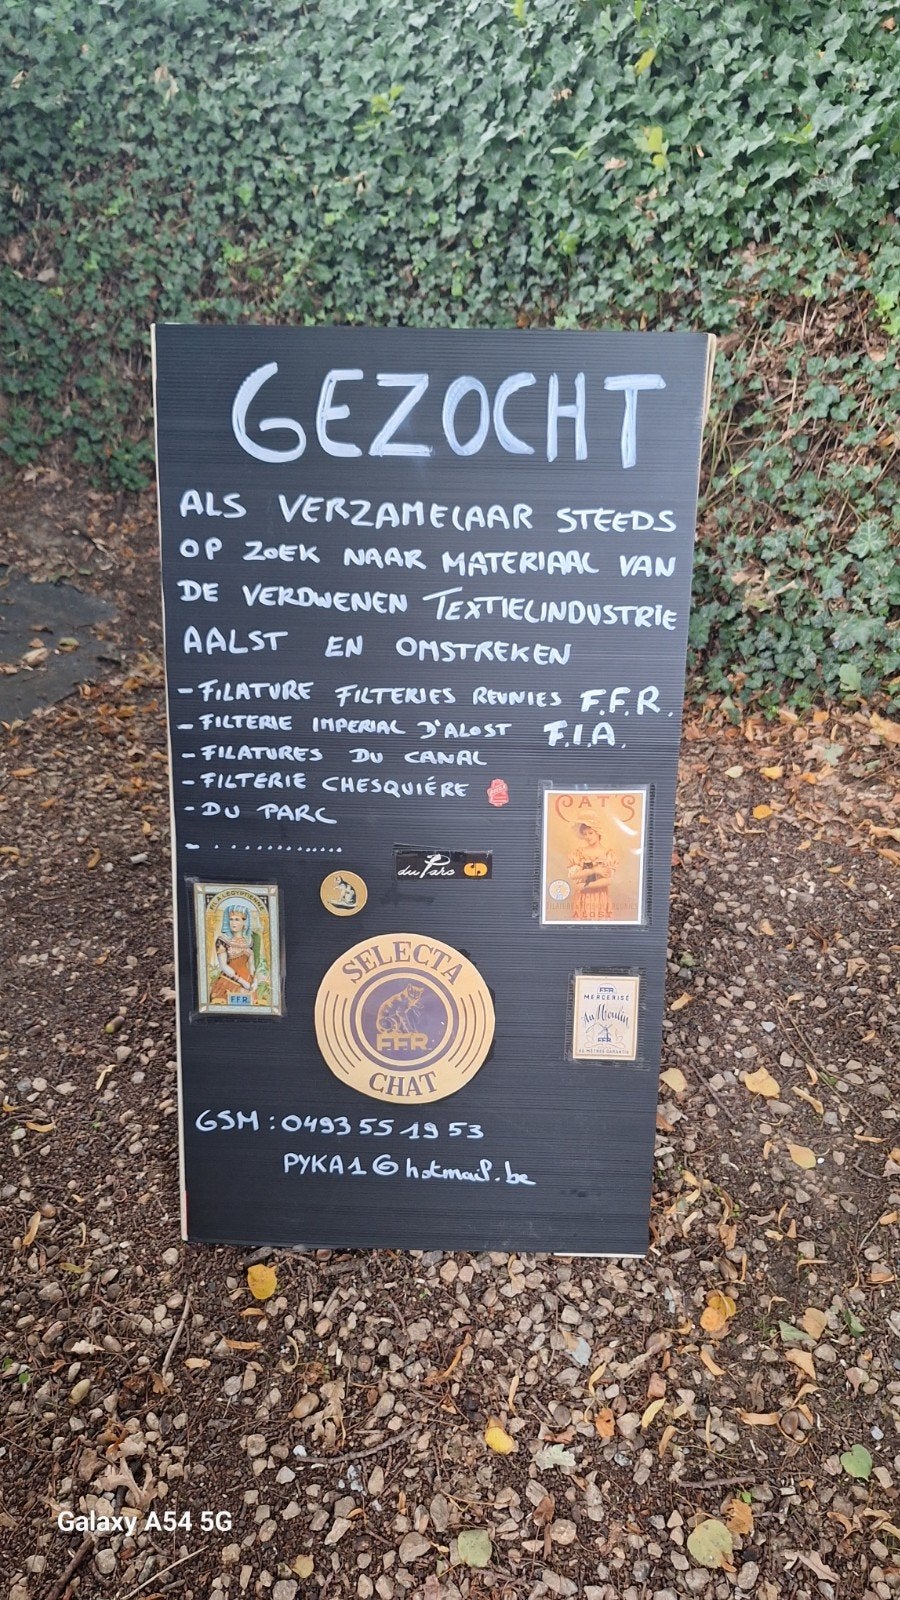 GEZOCHT
ALS VERZAMELAAR STEEDS
OP ZOEK NAAR MATERIAAL VAN
DE VERDWENEN TEXTIELINDUSTRIE
AALST EN OMSTREKEN
- FILATURE FILTERIES REUNIES F.F.R.
- FILTERIE IMPERIAL D'ALOST F.I.A.
- FILATURES DU CANAL
- FILTERIE CHESQUIÉRE
- DU PARC
- .............
CAT'S
FILATURES & FILTERIES REUNIES
ALOST
du Parc
A L'EGYPTIENNE
F.F.R.
SELECTA
F.F.R
CHAT
F.F.R
MERCERISÉ
Au Moulin
F.F.R
AU MÉTRAGE GARANTI
GSM : 0493 55 19 53
PYKA1@hotmail.be
Galaxy A54 5G